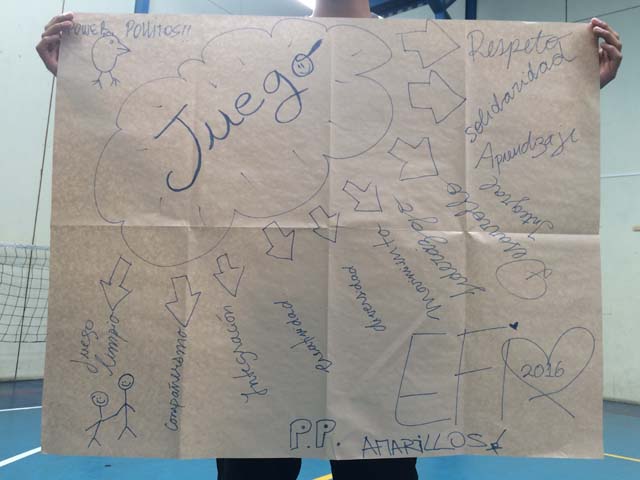 POWER POLLITOS!!
Juego
Respeto
Solidaridad
Aprendizaje
Desarrollo
Integral
Liderazgo
movimiento
diversidad
Creatividad
Integración
Compañerismo
Juego
limpio
EFI
2016
P.P. AMARILLOS